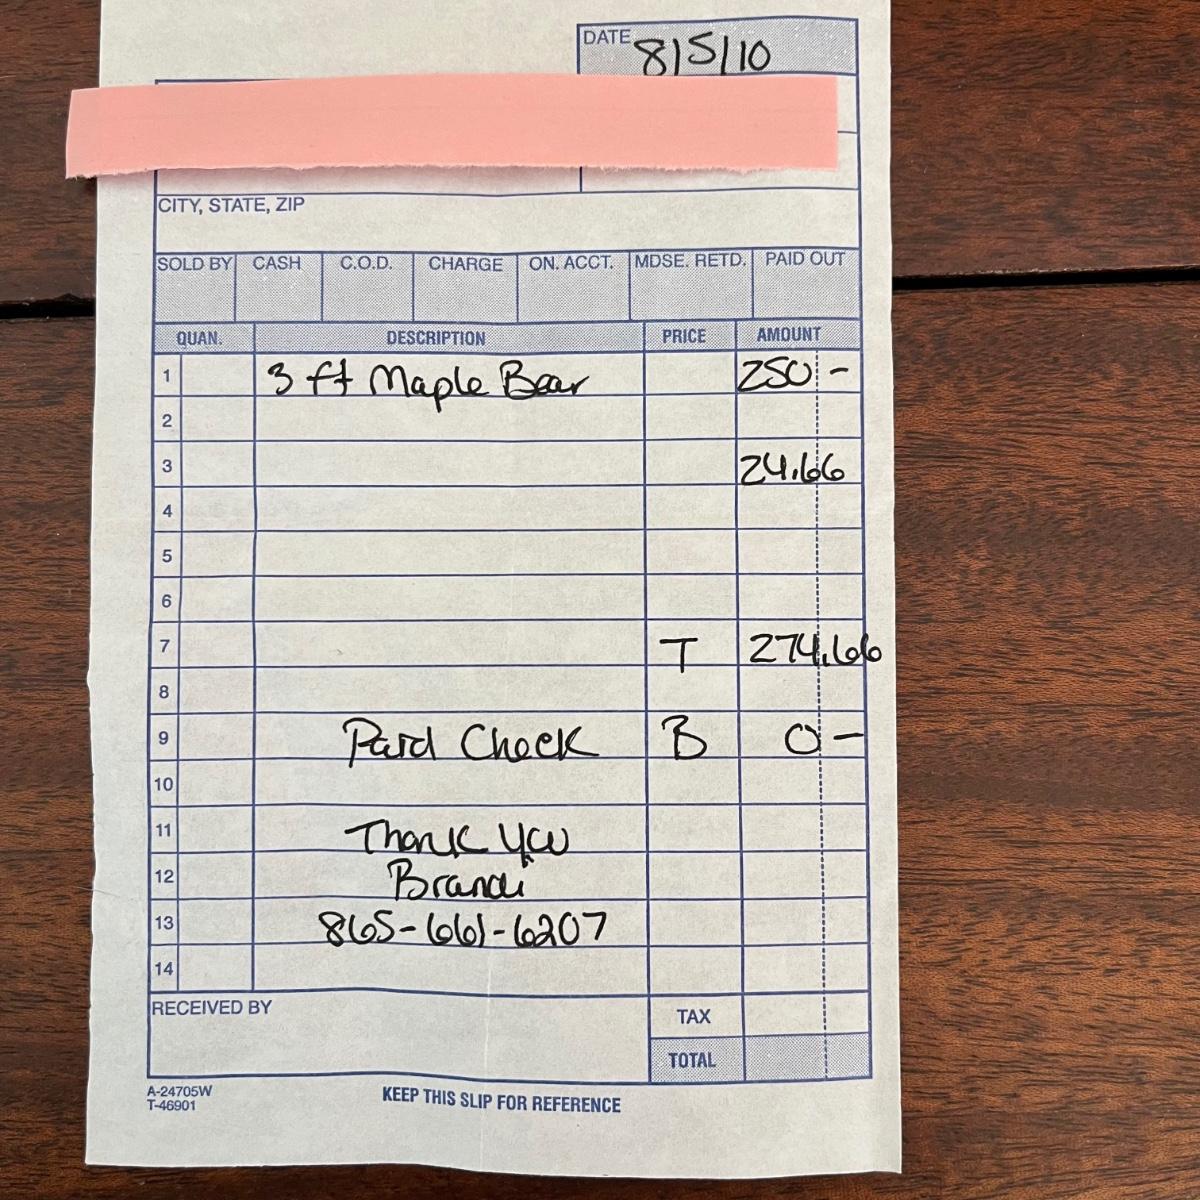 DATE 8/5/10
CITY, STATE, ZIP
SOLD BY CASH C.O.D. CHARGE ON. ACCT. MDSE. RETD. PAID OUT
QUAN. DESCRIPTION PRICE AMOUNT
1 3 ft Maple Bear 250 -
2
3 24.66
4
5
6
7 T 274.66
8
9 Paid Check B 0 -
10
11 Thank You
12 Brandi
13 865-661-6207
14
RECEIVED BY TAX
TOTAL
A-24705W
T-46901
KEEP THIS SLIP FOR REFERENCE